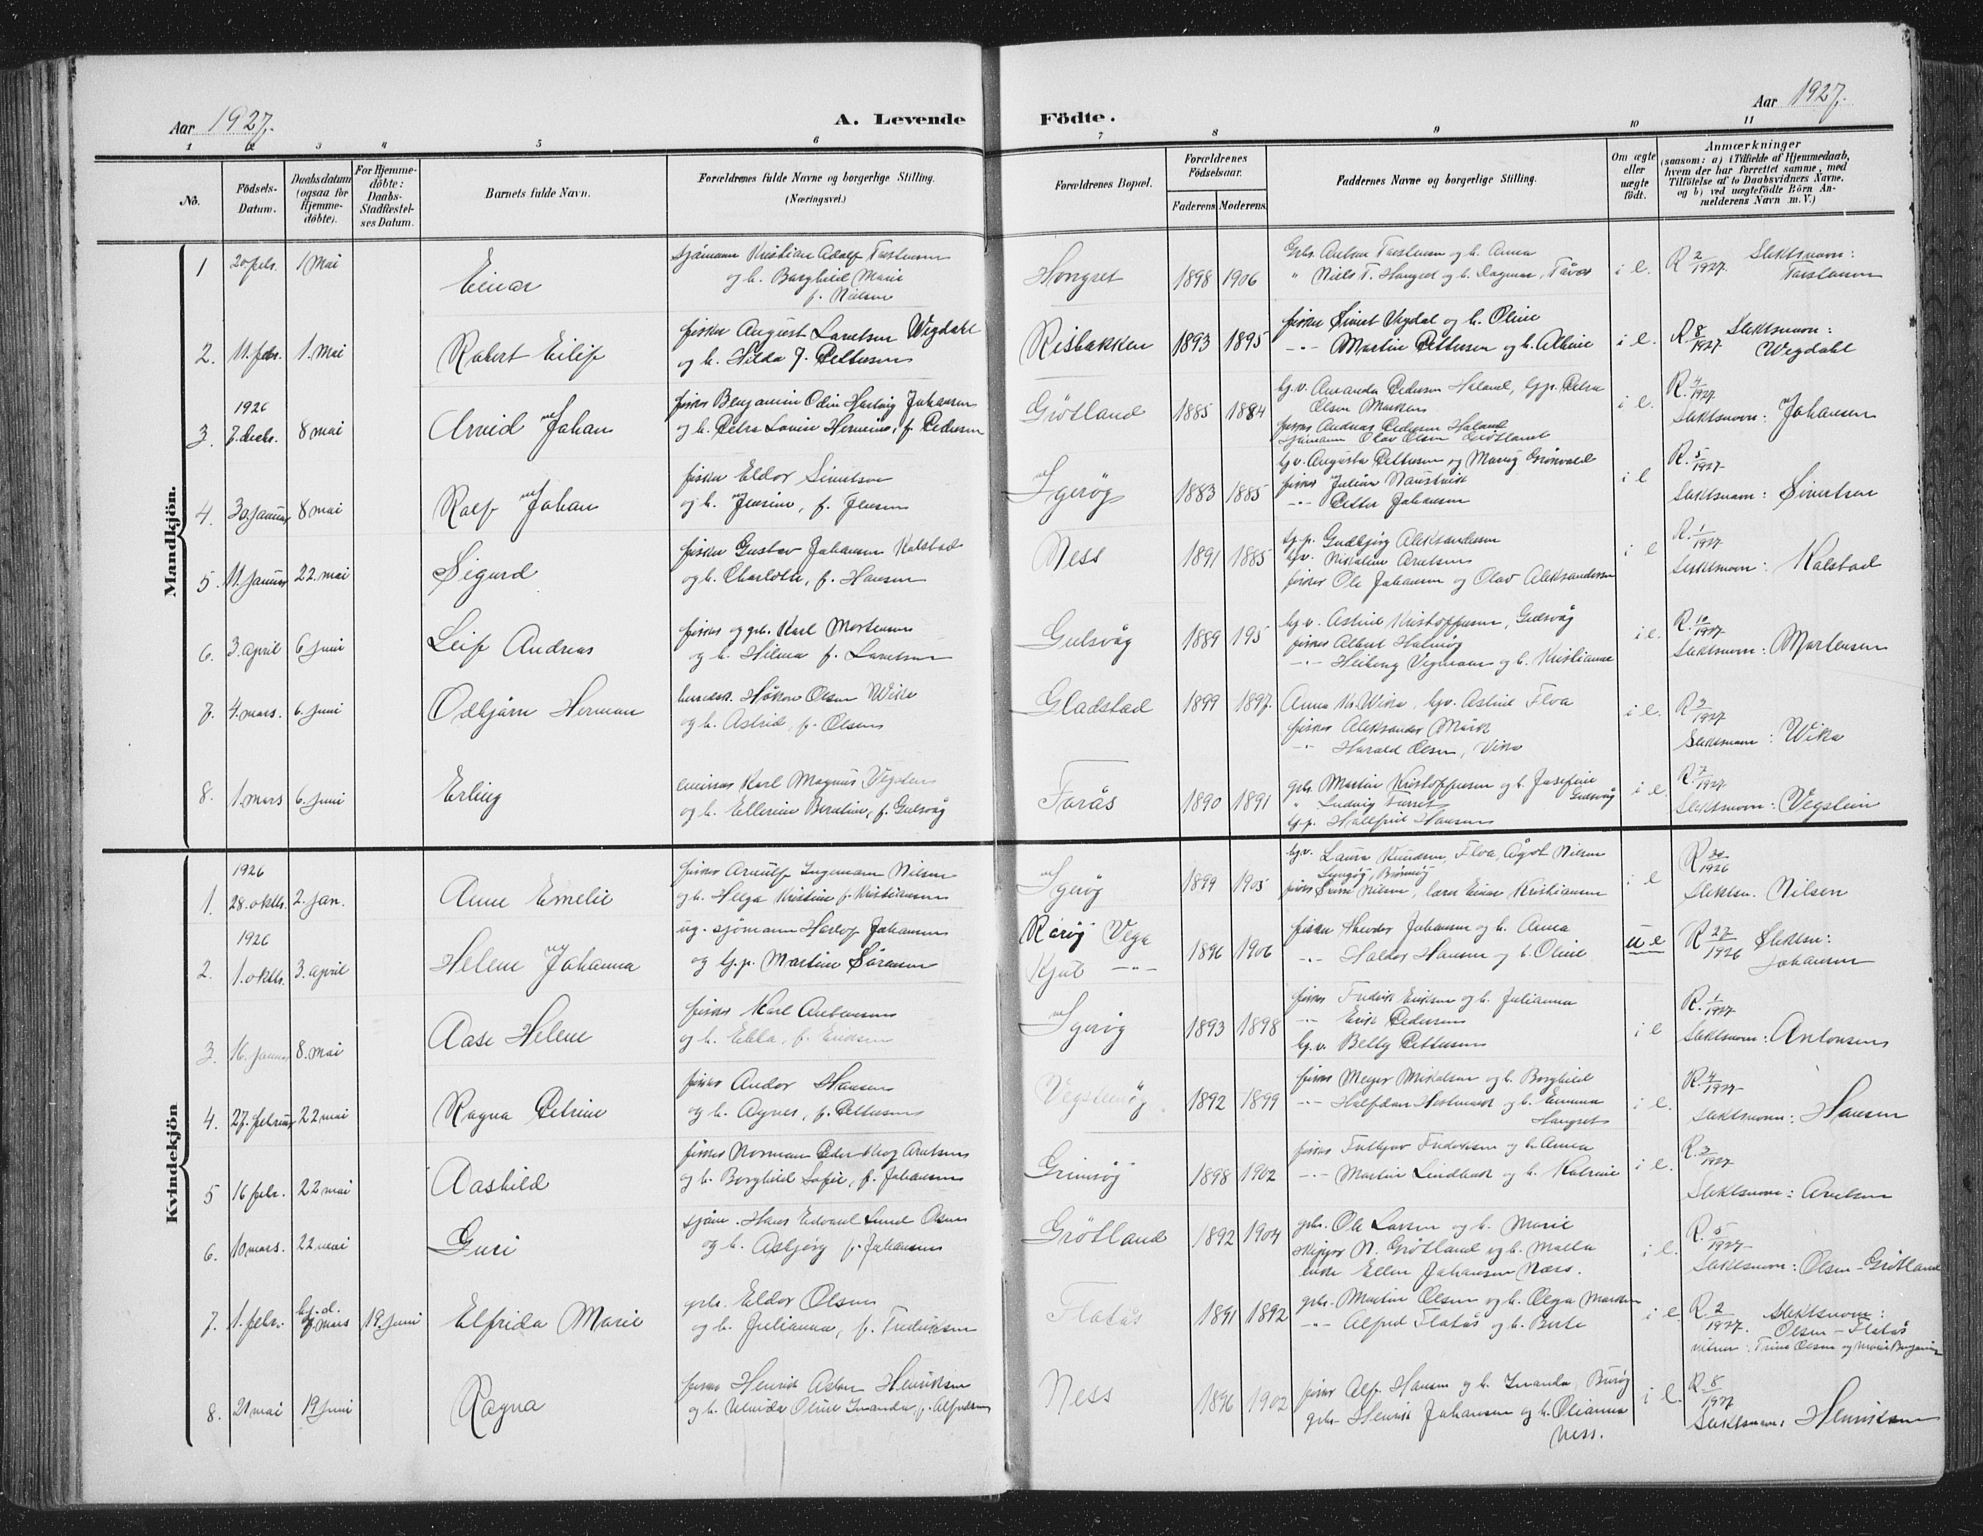 Aar 1927.
A. Levende
Födte.
Aar 1927.
1 2 3 4 5 6 7 8 9 10 11
No.
Födsels-
Datum.
Daabsdatum
(ogsaa for
Hjemme-
döbte).
For Hjemme-
döbte:
Daabs-
Stadfæstel-
ses Datum.
Barnets fulde Navn.
Forældrenes fulde Navne og borgerlige Stilling.
(Næringsvei.)
Forældrenes Bopæl.
Forældrenes
Födselsaar.
Faderens. Moderens.
Faddernes Navne og borgerlige Stilling.
Om ægte
eller
uægte
födt.
Anmærkninger
(saasom: a) i Tilfælde af Hjemmedaab,
hvem der har forrettet samme, med
Tilföielse af to Daabsvidners Navne,
og b) ved uægtefödte Börn An-
melderens Navn m. V.)
Mandkjön.
1 20 febr. 1 Mai
Einar
sjømann Kristian Adolf Torstensen
og h. Borghild Marie
f. Nielsen
Hongset 1898 1906
Grb. Anton Torstensen og h. Anna
" Niels T. Hongset og h. Dagmar,
i e. R 2/1927. Slektsnavn:
Torstensen
2. 11. febr. 1. Mai
Robert Eilif
fisker August Lorntsen Wegdahl
og h. Hilda J. Pettersen
Risbakken 1893 1895
fisker Sivert Vegdal og h. Oline
-"- Martin Pettersen og h. Albine
i e. R 8/1927 Slektsnavn:
Wegdahl
1926
3. 7. decbr. 8 mai
Arvid Johan
fisker Benjamin Odin Hartvig Johansen
og h. Petra Lovise Hermine, f. Pedersen
Grötland 1885 1884
hv. Amanda Pedersen Haland, gp. Petra
Olsen Marken
fisker Andreas Pedersen Haland
sjømann Olav Olsen Grötland
i e. R. 4/1927.
Slektsnavn: Johansen
4. 30. januar 8 mai
Rolf Johan
fisker Eldor Sivertsen
og h. Jensine, f. Jensen
Igerög 1883 1885
hv. Augusta Pettersen og Margit Grönvold
fisker Julius Naustvik
-"- Petter Johansen
i e R. 5/1927.
Slektsnavn: Sivertsen
5. 11. januar 22. mai
Sigurd
fisker Gustav Johansen Kalstad
og h. Charlotte, f. Hansen
Ness 1891 1885
gp. Gudbjörg Aleksandersen
hv. Nikoline Arntsen
fisker Ole Johansen og Olav Aleksandersen
i e R. 1/1927.
Slektsnavn: Kalstad
6. 3. april 6 juni
Leif Andreas
fisker og grb. Karl Mortensen
og h. Hilma f. Lorntsen
Gulsvåg 1889 195
hv. Astrid Kristoffersen, Gulsvåg
-"- Heiberg Vegmann og h. Kristianne
i e. R. 10/1927.
Slektsnavn: Mortensen
7. 4. mars. 6. juni
Odbjørn Herman
Håkon Olsen Wika
og h. Astrid, f. Olsen
Gladstad 1899 1897.
Anna Kr. Wika, hv. Astrid Floa
fisker Aleksander Mörk
-"- Harald Olsen, Vika
i e. R 3/1927
Slektsnavn: Wika
8. 1. mars 6. juni
Erling
Karl Magnus Vegstein
og h. Ellerine Berntine, f. Gulsvåg
Forås 1890 1891
grb. Martin Kristoffersen og h. Josefine
Gulsvåg
" Ludvig
gp. Hallfrid Hansen
i e. R. 7/1927.
Slektsnavn: Vegstein
Kvindekjön
1926
1. 28. oktb. 2. jan.
Anne Emelie
fisker Arnulf Ingemann Nilsen
og h. Helga Kristine f. Kristiansen
Igerög 1899 1905
hv. Laura Knudsen, Floa, Ågot Nilsen
fisker Nilsen, lærer Einar Kristiansen
i e R 30/1926
Slektsn. Nilsen
1926
2. 1. oktb. 3. april
Helene Johanna
ug. sjömann Harlof Johansen
og gp. Martine Sörensen
Rörög Vega
Kjul -"-
1896 1906
fisker Theodor Johansen og h. Anna
-"- Haldor Hansen og h. Oline
u e R 27/1926 Slektsn:
Johansen
3. 16. januar 8. mai
Aase Helene
fisker Karl Antonsen
og h. Ebba, f. Eriksen
Igerög 1893 1898
fisker Fredrik Eriksen og h. Julianna
-"- Erik Pedersen
hv. Belly Pettersen
i e R. 1/1927.
Slektsnavn: Antonsen
4. 27. februar 22 mai
Ragna Petrine
fisker Andor Hansen
og h. Agnes, f. Pettersen
Vegsteinög. 1892 1899
fisker Meyer Mikalsen og h. Borghild
-"- Halfdan Hestmark og h. Emma
Hongset
i e. R. 4/1927.
Slektsnavn: Hansen
5 16 febr. 22 mai
Aashild
fisker Norman Peder Skog Arntsen
og h. Borghild Sofie, f. Johansen
Grimsög 1898 1902
fisker Fritjov Fredriksen og h. Anna
-"- Martin Lindbak og h. Katrine
i e. R. 3/1927.
Slektsnavn: Arntsen
6. 10 mars. 22 mai
Guri
sjöm. Hans Edvard Lund Olsen
og h. Asbjørg f. Johansen
Grötland 1892 1904
grb. Ole Larsen og h. Marie
skipper N. Grötland og h. Malla
enke Ellen Johansen Næss.
i e. R. 5/1927
Slektsnavn: Olsen-Grötland
7. 1. febr. hj. d. 7 mars 19. juni
Elfrida Marie
grb. Eldor Olsen
og h. Julianna, f. Fredriksen
Flatås 1891 1892
grb. Martin Olsen og h. Olga Marken
-"- Alfred Flatås og h. Berte
i e R 2/1927. Slektsnavn:
Olsen-Flatås
vitner: Trine Olsen og Marie
8. 21 mai 19 juni
Ragna
fisker Henrik Aston Henriksen
og h. Oline Inanda, f. Alfredsen
Ness 1896 1902
fisker Alf Hansen og h. Inanda, Burög
grb. Henrik Johansen og h. Olianna
Ness.
i e. R. 8/1927
Slektsnavn: Henriksen